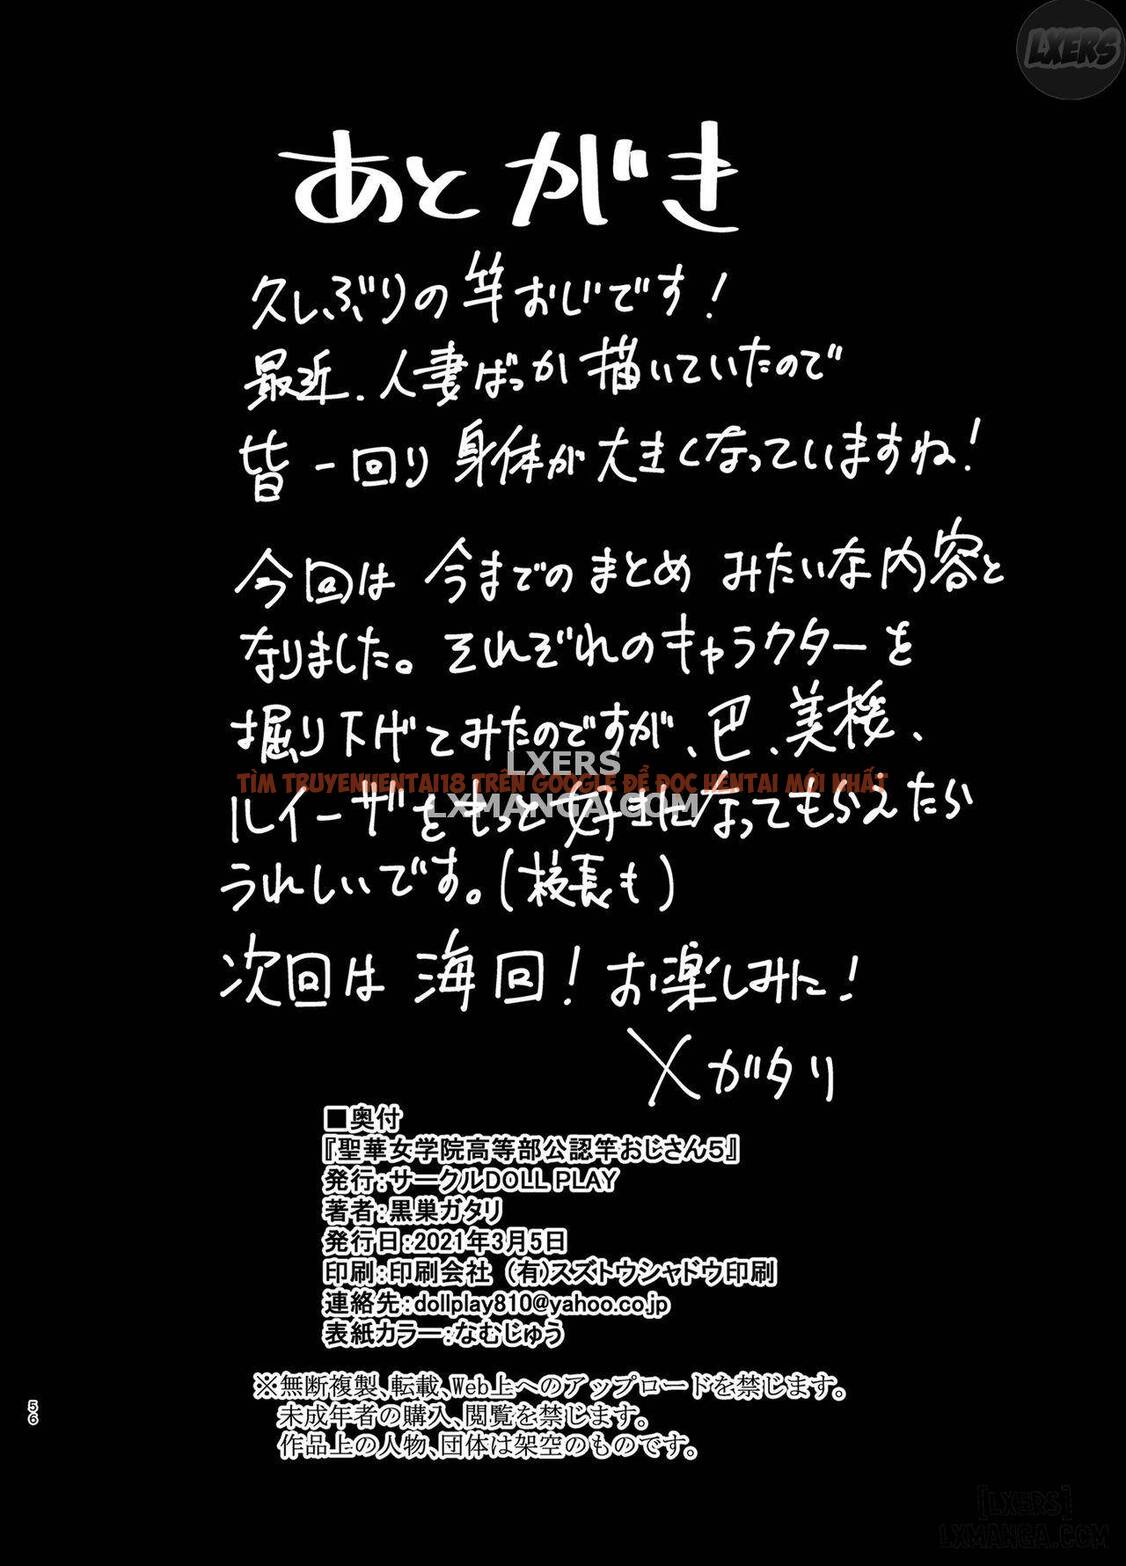 LXERS
あとがき
久しぶりの竿おじです!
最近、人妻ばっか描いていたので
皆一回り身体が大きくなっていますね!
今回は今までのまとめみたいな内容と
なりました。それぞれのキャラクターを
掘り下げてみたのですが、巴、美桜、
LXERS
TÌM TRUYENHENTAI18 TRÊN GOOGLE ĐỂ ĐỌC HENTAI MỚI NHẤT
LXMANGA.COM
ルイーザをもっと好きになってもらえたら
うれしいです。(校長も)
次回は海回!お楽しみに!
メガタリ
■奥付
『聖華女学院高等部公認竿おじさん5』
発行:サークルDOLL PLAY
著者:黒巣ガタリ
発行日:2021年3月5日
印刷:印刷会社 (有)スズトウシャドウ印刷
連絡先:dollplay810@yahoo.co.jp
表紙カラー:なむじゅう
※無断複製、転載、Web上へのアップロードを禁じます。
未成年者の購入、閲覧を禁じます。
作品上の人物、団体は架空のものです。
56
[LXERS]
LXMANGA.COM